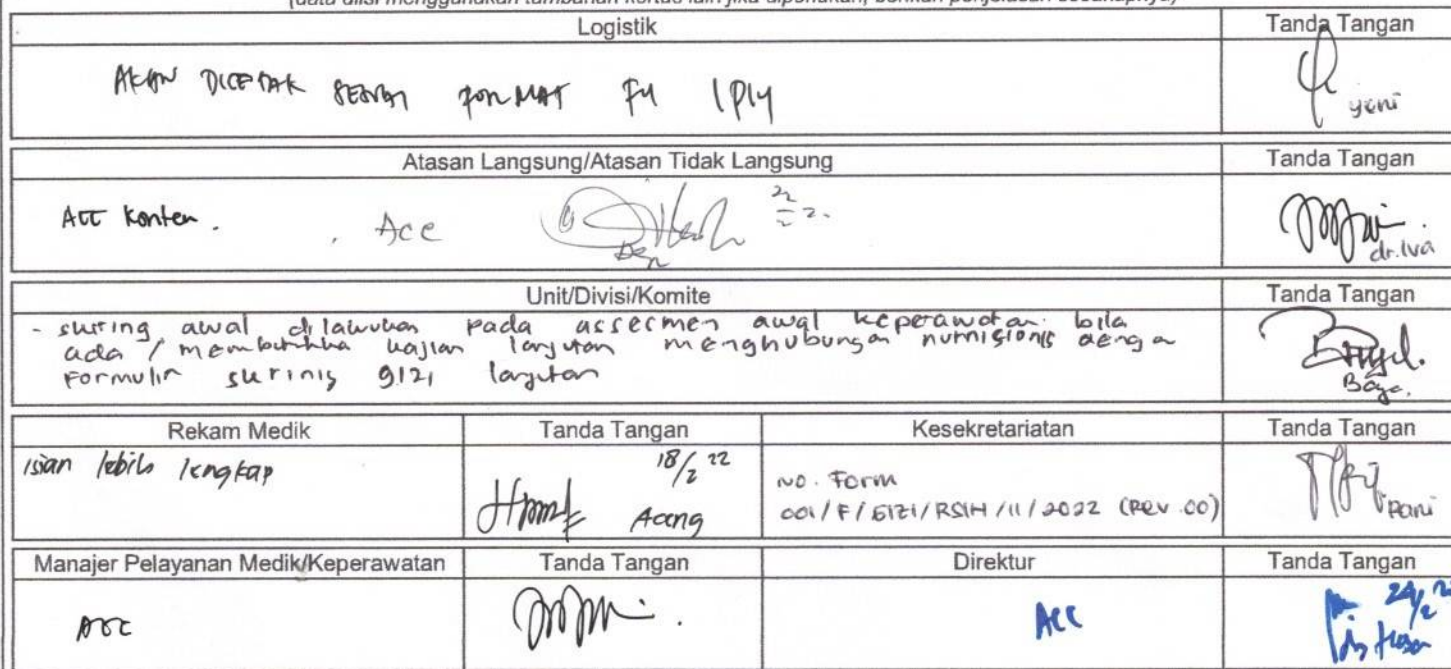 (data diisi menggunakan tambahan kertas lain jika diperlukan, berikan penjelasan secukupnya)
Logistik Tanda Tangan
AKAN DICETAK SESUAI FORMAT F4 1 Ply
yeni
Atasan Langsung/Atasan Tidak Langsung Tanda Tangan
ACC Konten. Acc
dr. Iva
Unit/Divisi/Komite Tanda Tangan
- skrining awal dilakukan pada assecmen awal keperawatan bila
ada / membutuhka kajian lanjutan menghubungan nutrisionis denga
Formulir skrining gizi lanjutan
Rekam Medik Tanda Tangan Kesekretariatan Tanda Tangan
isian lebih lengkap 18/2 22
Aceng
No. Form
001/F/GIZI/RSIH/II/2022 (Rev.00)
Pani
Manajer Pelayanan Medik/Keperawatan Tanda Tangan Direktur Tanda Tangan
ACC ACC